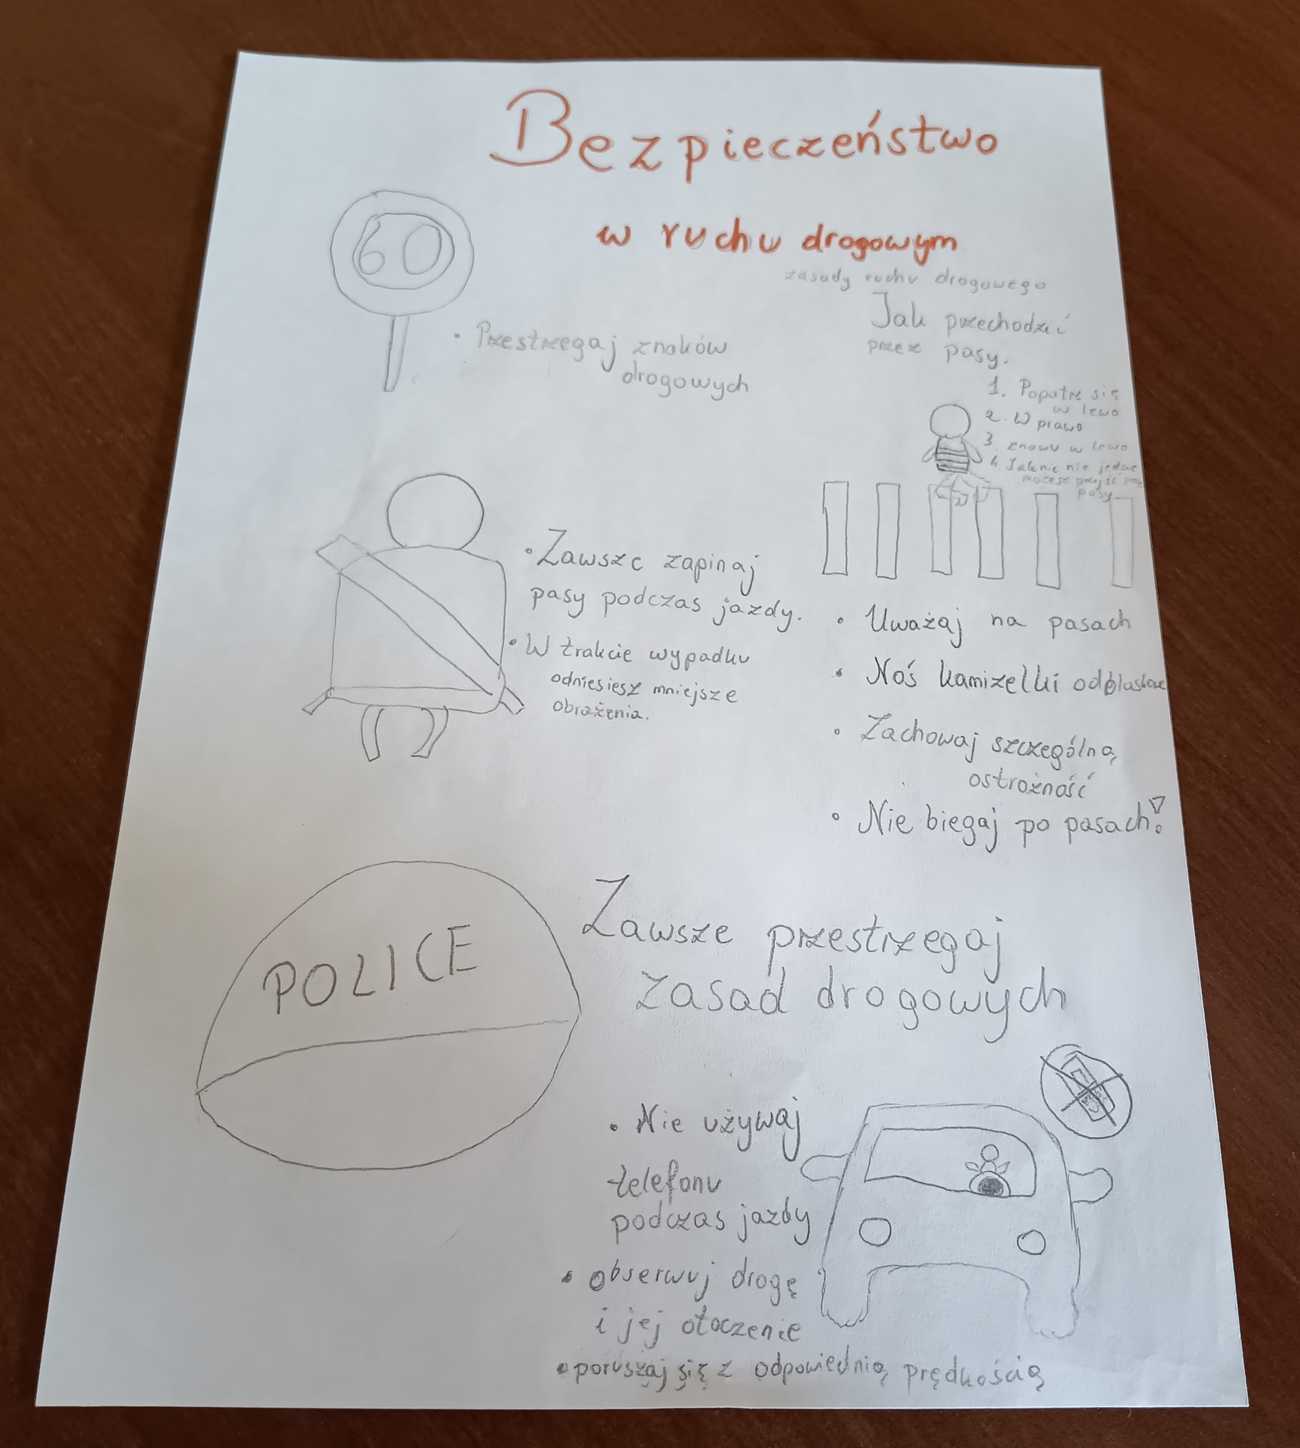 Bezpieczeństwo
w ruchu drogowym
zasady ruchu drogowego
60
• Przestrzegaj znaków
drogowych
Jak przechodzić
przez pasy.
1. Popatrz się
w lewo
2. W prawo
3. znowu w lewo
4. Jak nic nie jedzie
możesz przejść przez
pasy
• Zawsze zapinaj
pasy podczas jazdy.
• W trakcie wypadku
odniesiesz mniejsze
obrażenia.
• Uważaj na pasach
• Noś kamizelki odblaskowe
• Zachowaj szczególną
ostrożność
• Nie biegaj po pasach!
POLICE
Zawsze przestrzegaj
zasad drogowych
• Nie używaj
telefonu
podczas jazdy
• obserwuj drogę
i jej otoczenie
• poruszaj się z odpowiednią prędkością